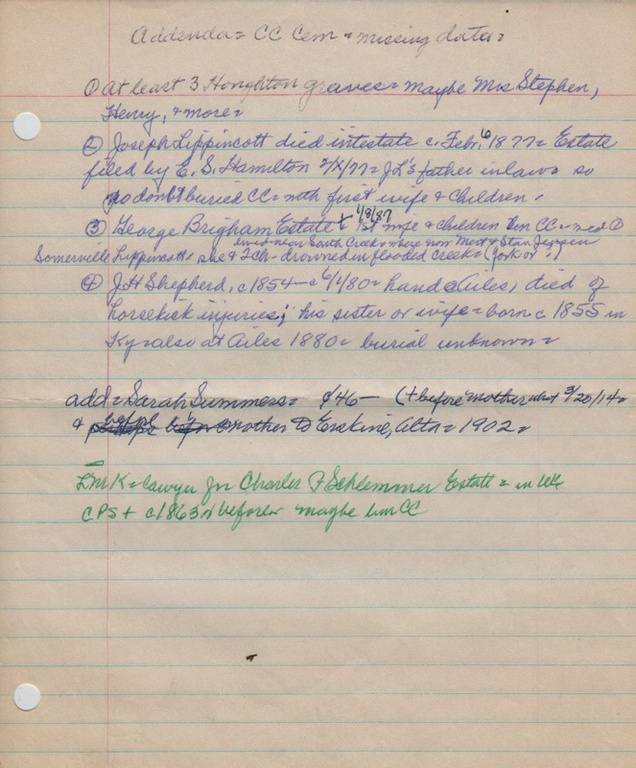 Addenda = CC Cem = missing data =
① at least 3 Houghton graves = maybe Mrs Stephen,
Henry, & more =
② Joseph Lippincott died intestate c. Feb. 6 1877 = Estate
filed by E. S. Hamilton 2/8/77 = JL's father in law = so
no doubt buried CC = with first wife & children.
③ George Brigham Estate + 1/9/87 1st wife & children bur CC =
lived near South Creek = where now Mert & Stan Jensen
Somerville Lippincott = she & 2 Ch - drowned in flooded Creek = (York or
④ J.H Shepherd, c1854 - c 6/1/80 = hand @ Ailes, died of
horsekick injuries; his sister or wife = born c 1855 in
Ky = also at Ailes 1880 = burial unknown =
add = Sarah Summers = 46 - (+ before mother 3/20/14 =
& before mother to Erskine, Alta = 1902 =
= lawyer for Charles F Schlemmer Estate = in
c1863 or before = maybe bur CC